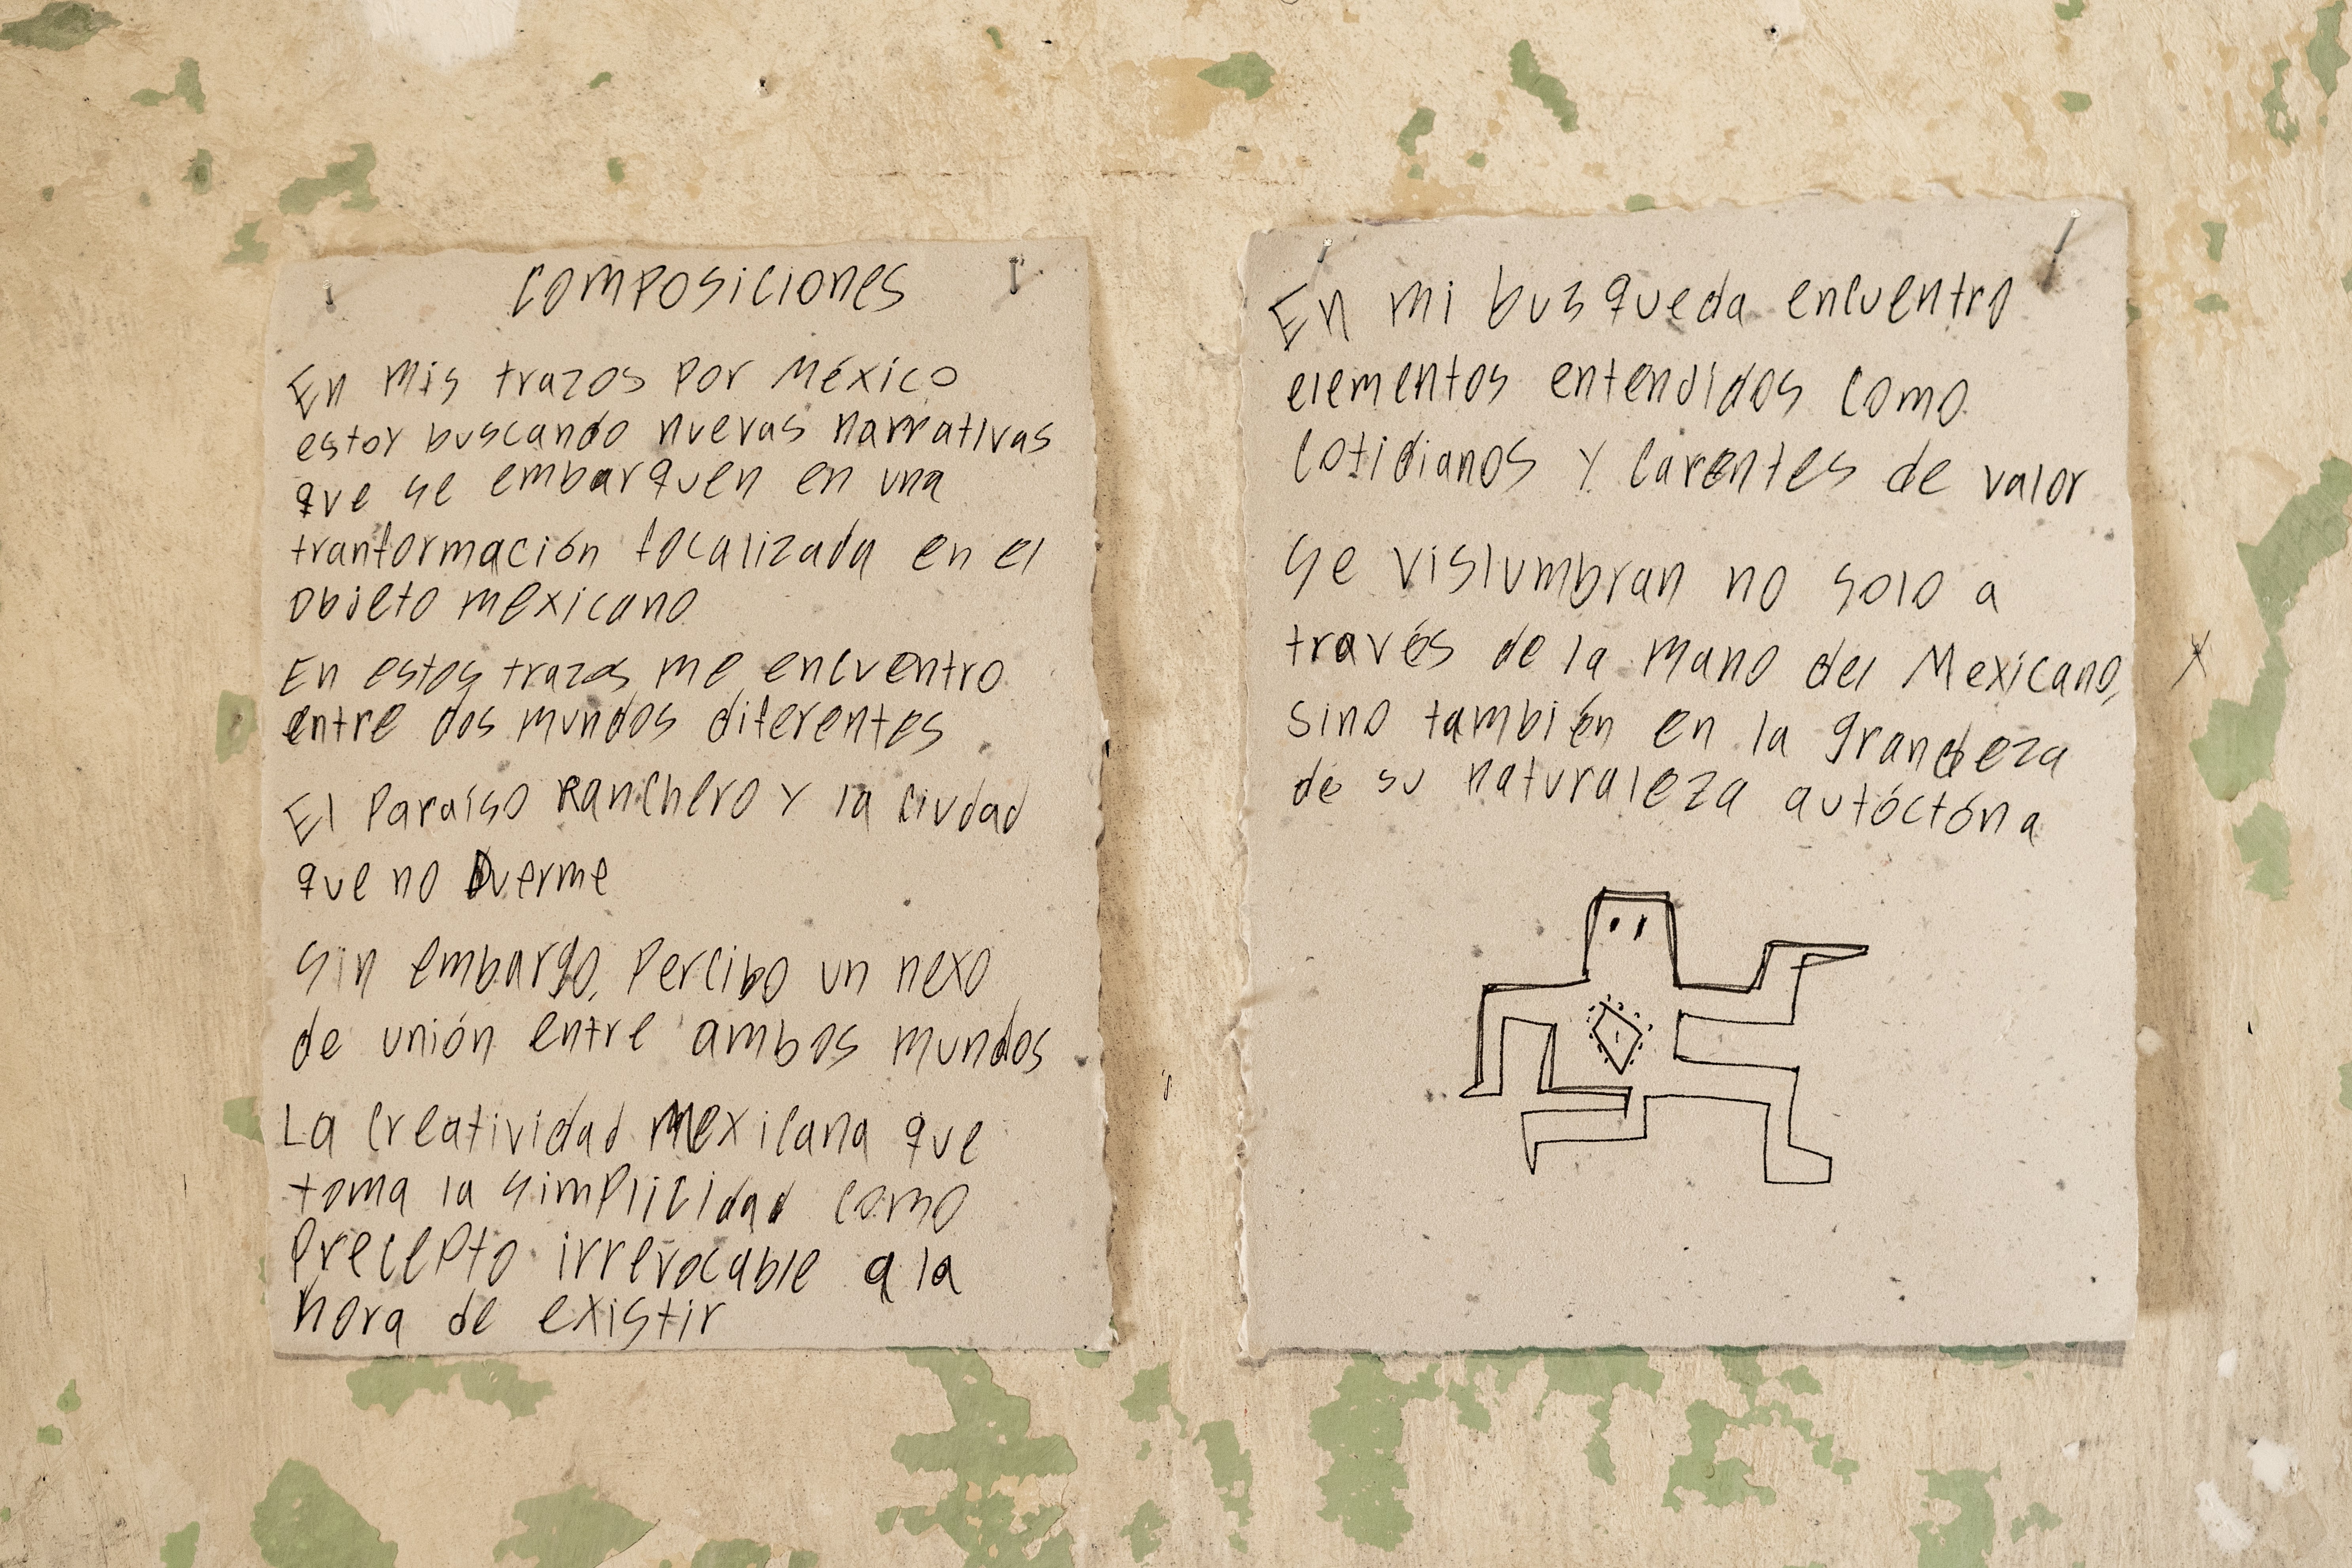 COMPOSICIONES
En mis trazos por México
estoy buscando nuevas narrativas
que se embarquen en una
tranformación focalizada en el
objeto mexicano
En estos trazos me encuentro
entre dos mundos diferentes
El Paraíso Ranchero y la ciudad
que no Duerme
Sin embargo, Percibo un nexo
de unión entre ambos mundos
La creatividad Mexicana que
toma la simplicidad como
Precepto irrevocable a la
hora de existir
En mi busqueda encuentro
elementos entendidos como
cotidianos y carentes de valor
Se vislumbran no solo a
través de la mano del Mexicano,
sino también en la grandeza
de su naturaleza autóctóna